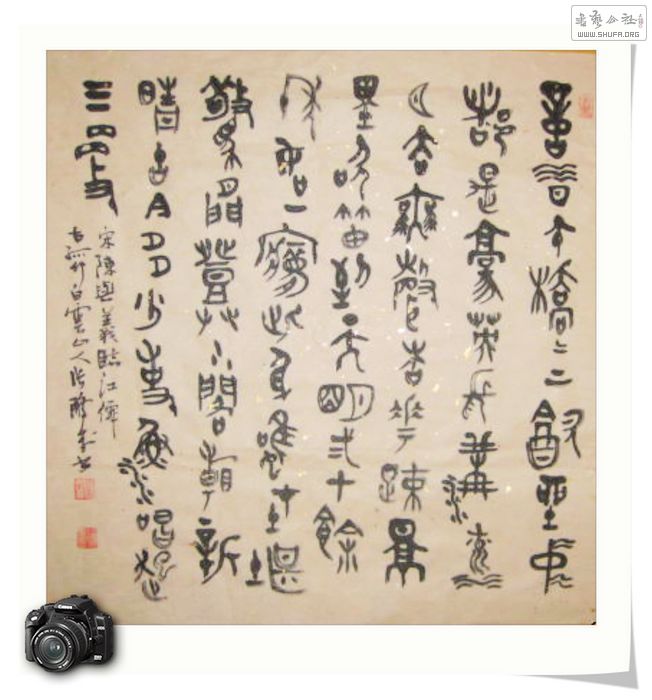 書艺公社
WWW.SHUFA.ORG
憶昔午橋〻上飲坐中
都是豪英長溝流
月去無聲杏花疎影
裏吹笛到天明二十餘
年如一夢此身雖在堪
驚閒登小閣新
晴古今多少事漁唱起
三更
宋陳與義臨江僊
白雲山人
Canon